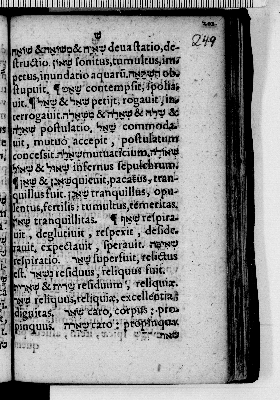 ש
249
שואה & שאיה & משואה deuastatio, de-
structio. שאון sonitus, tumultus, im-
petus, inundatio aquarũ. obs
stupuit, ¶ contempsit, spolia-
uit. ¶ שאל & שאל petijt, rogauit, in-
terrogauit.
שאלה postulatio, שאל commoda-
uit, mutuò accepit, postulatum
concessit. mutuaticium,
שאול & שאול infernus sepulchrum.
¶ שאן & שאנן quieuit, pacatus, tran-
quillus fuit. שאנן tranquillus, opu-
lentus, fertilis; tumultus, temeritas.
tranquillitas. ¶ שאף respira-
uit, deglutiuit, respexit, deside-
rauit, expectauit, sperauit.
respiratio. שאר superfuit, relictus
est. נשאר residuus, reliquus fuit.
שארית & residuum, reliquiæ.
שאר reliquus, reliquiæ, excellentia;
dignitas. שאר caro, corpus; pro-
pinquus. שארה caro; propinqua